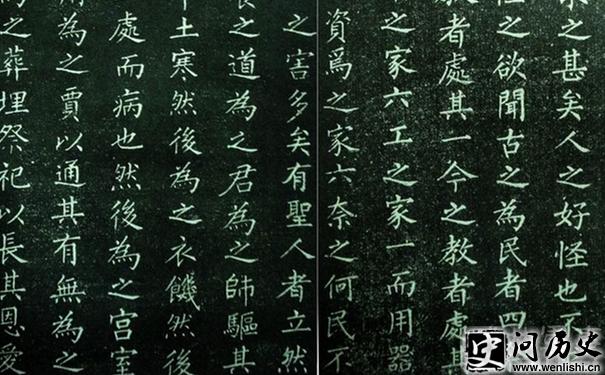 之甚矣人之好怪也不
怪之欲聞古之為民者四
教者處其一今之教者處其
之家六工之家一而用器
資焉之家六奈之何民不
之害多矣有聖人者立然
之道為之君為之師驅其
土寒然後為之衣饑然後
處而病也然後為之宮室
為之賈以通其有無為之
之葬埋祭祀以長其恩愛
问历史
www.wenlishi.cn